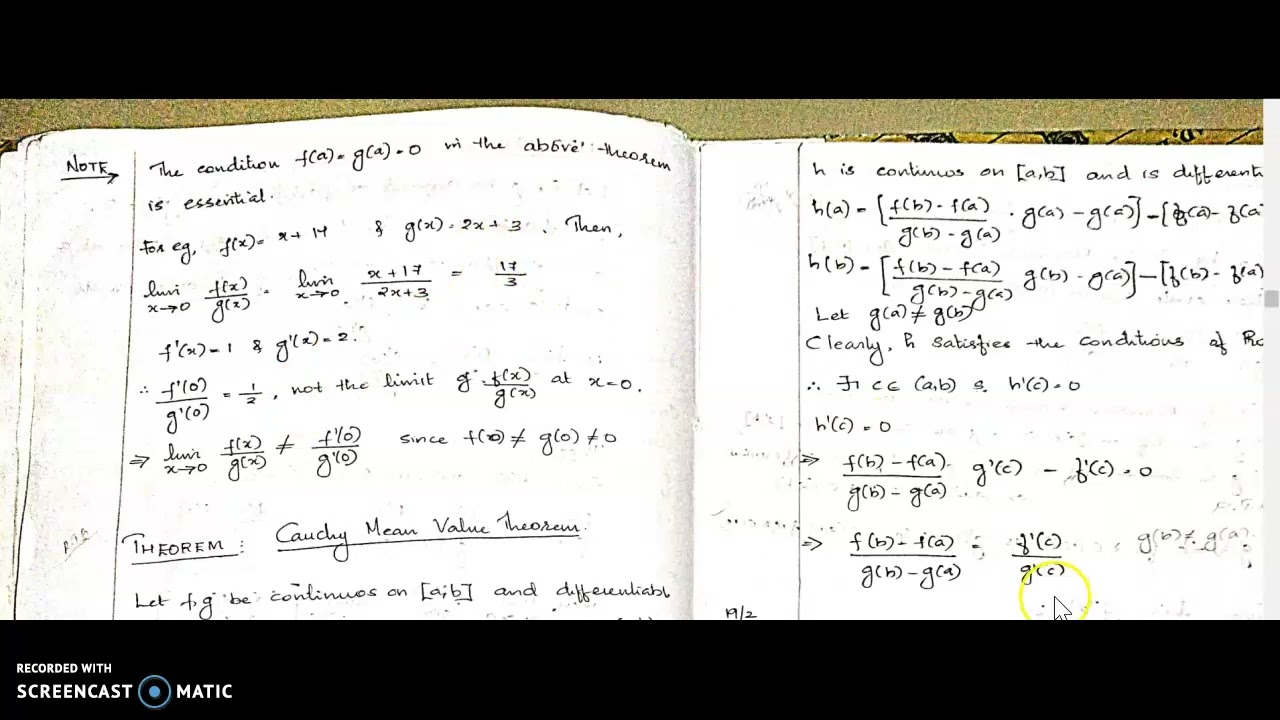 NOTE
The condition f(a) = g(a) = 0 in the above theorem
is essential.
For eg, f(x) = x + 17 & g(x) = 2x + 3. Then,
lim x→0 f(x)/g(x) = lim x→0 x+17/2x+3 = 17/3
f'(x) = 1 & g'(x) = 2.
∴ f'(0)/g'(0) = 1/2, not the limit of f(x)/g(x) at x=0.
⇒ lim x→0 f(x)/g(x) ≠ f'(0)/g'(0) since f(0) ≠ g(0) ≠ 0
THEOREM: Cauchy Mean Value Theorem
Let f,g be continuos on [a,b] and differentiable
h is continuos on [a,b] and is differenti
h(a) = [f(b) - f(a)/g(b) - g(a) · g(a) - g(a)] - [f(a) - f(a
h(b) = [f(b) - f(a)/g(b) - g(a) g(b) - g(a)] - [f(b) - f(a)
Let g(a) ≠ g(b)
Clearly, h satisfies the conditions of Ro
∴ ∃ c ∈ (a,b) s. h'(c) = 0
h'(c) = 0
⇒ f(b) - f(a)/g(b) - g(a) g'(c) - f'(c) = 0
⇒ f(b) - f(a)/g(b) - g(a) = f'(c)/g'(c), g(b) ≠ g(a).
19/2
RECORDED WITH
SCREENCAST MATIC